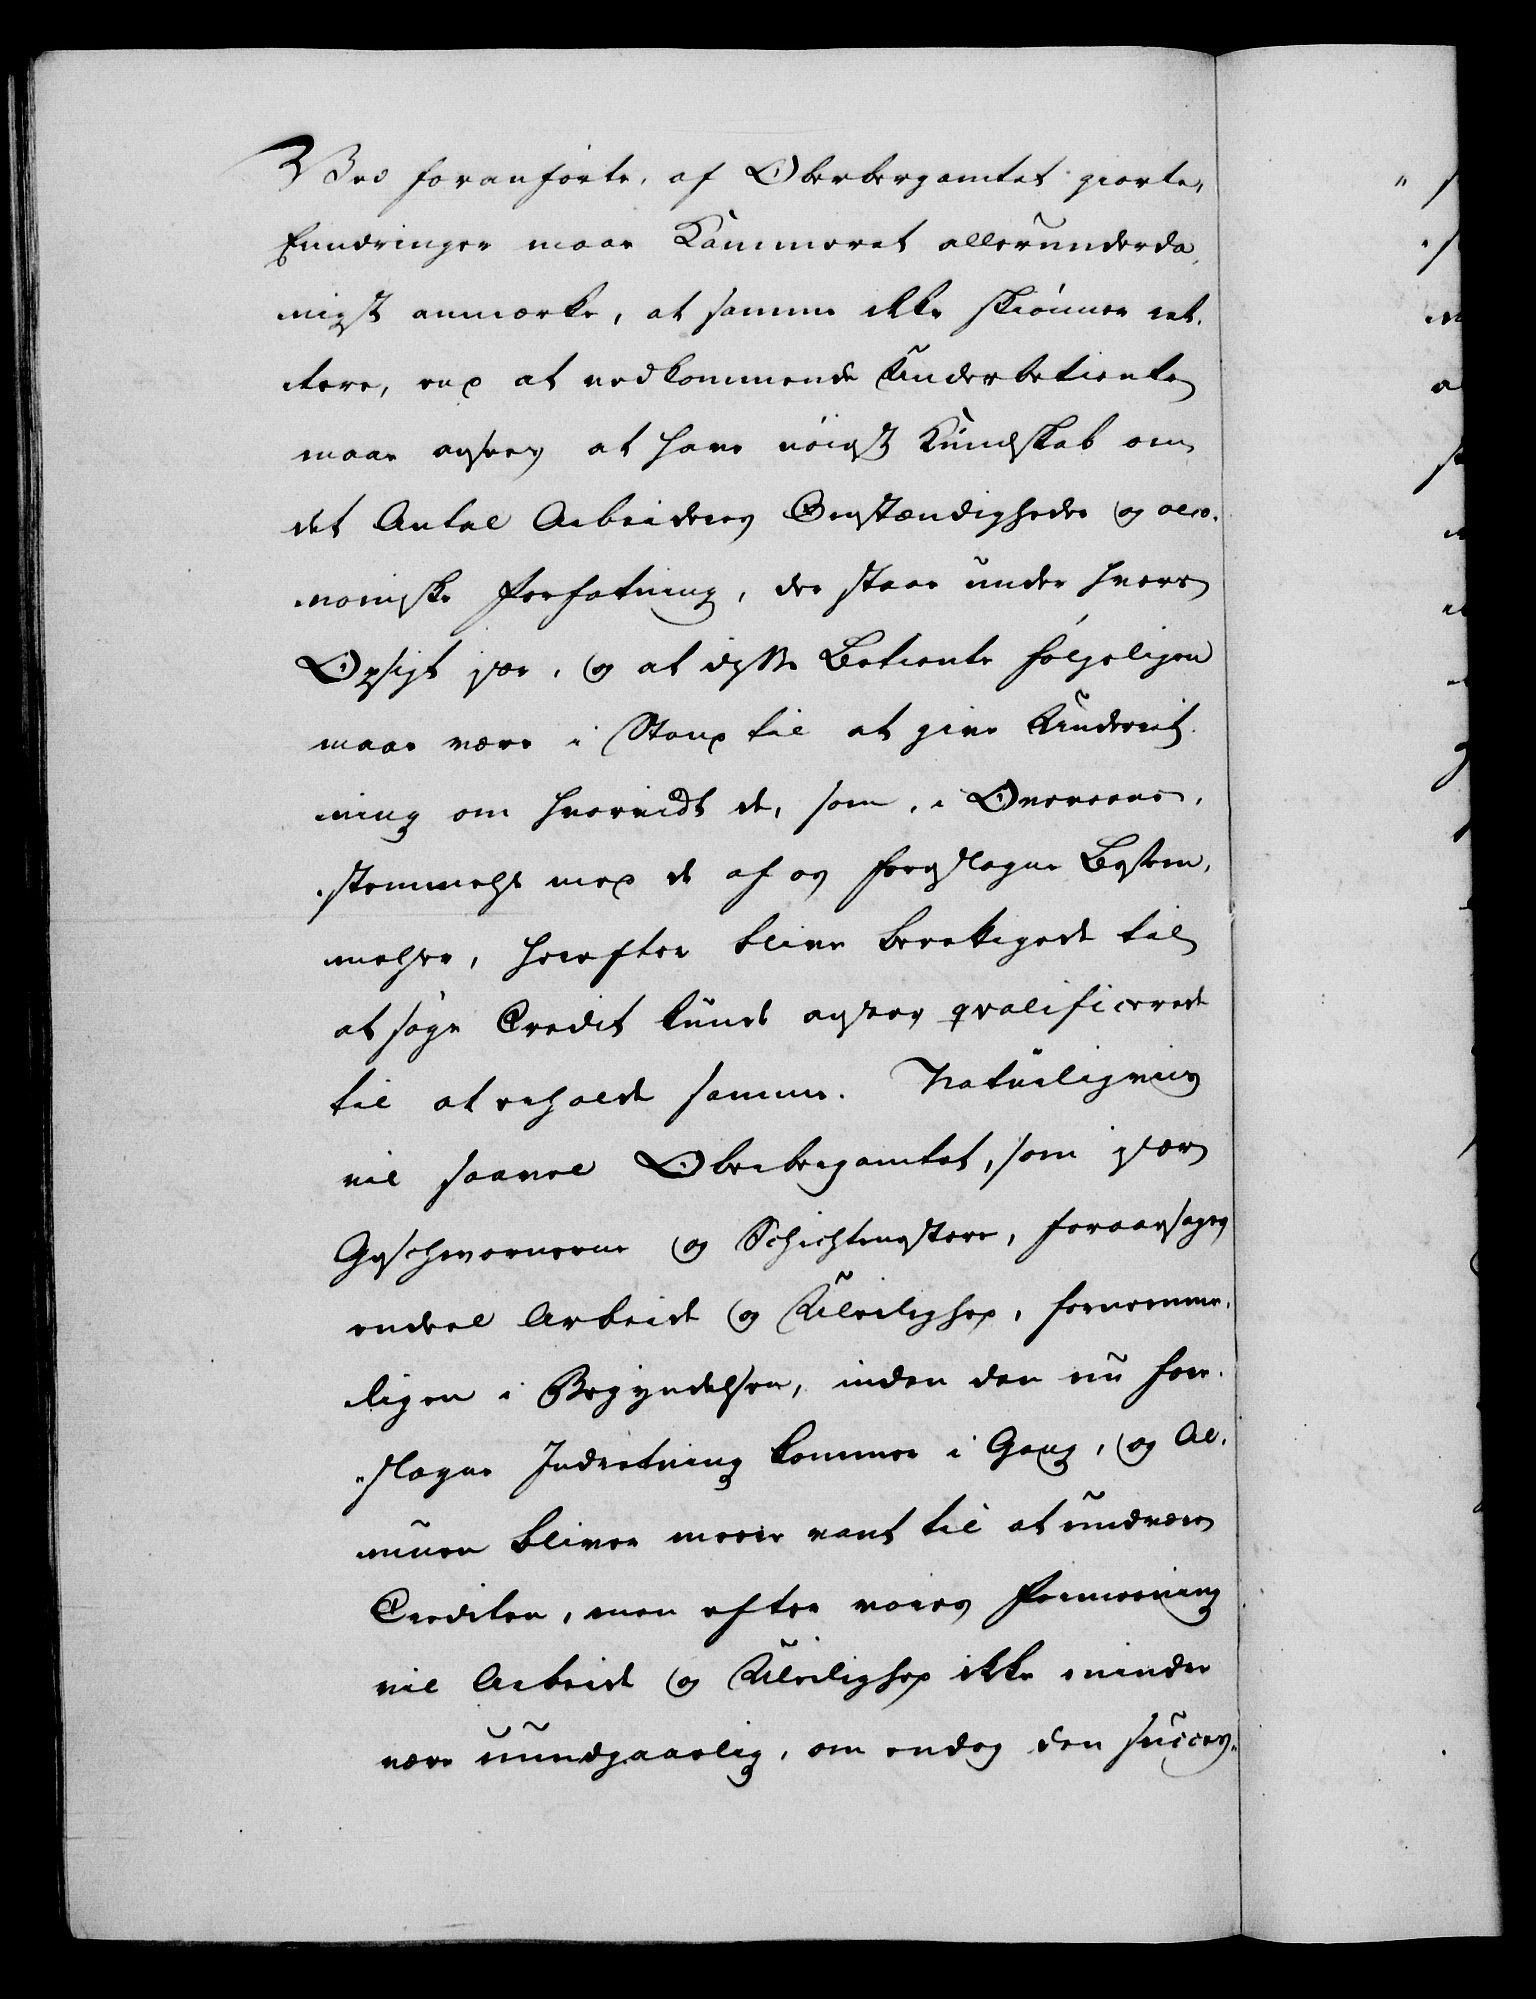 Ved foranførte, af Oberbergamtet giorte
Erindringer maae Kammeret allerunderda,
nigst anmærke, at samme ikke skiønner ret,
tere, end at vedkommende Underbetiente
maae ansees at have nøiest Kundskab om
det Antal Arbeideres Omstændigheder og oeco,
nomiske Forfatning, der staae under hvers
Opsigt især, og at disse Betiente følgeligen
maae være i Stand til at give Underret,
ning om hvorvidt de, som, i Overeens,
stemmelse med de af os foreslagne Bestem,
melser, herefter blive berettigede til
at søge Credit kunde ansees qvalificerede
til at erholde samme. Naturligviis
vil saavel Oberbergamtet, som især
Geschwornerne og Schichtmestere, foraarsages
endeel Arbeide og Uleilighed, fornemme,
ligen i Begyndelsen, inden den nu fore,
slagne Indretning kommer i Gang, og Al,
muen bliver meere vant til at undvære
Crediten, men efter vores Formeening
vil Arbeide og Uleilighed ikke mindre
være uundgaaelig, om endog den succes,